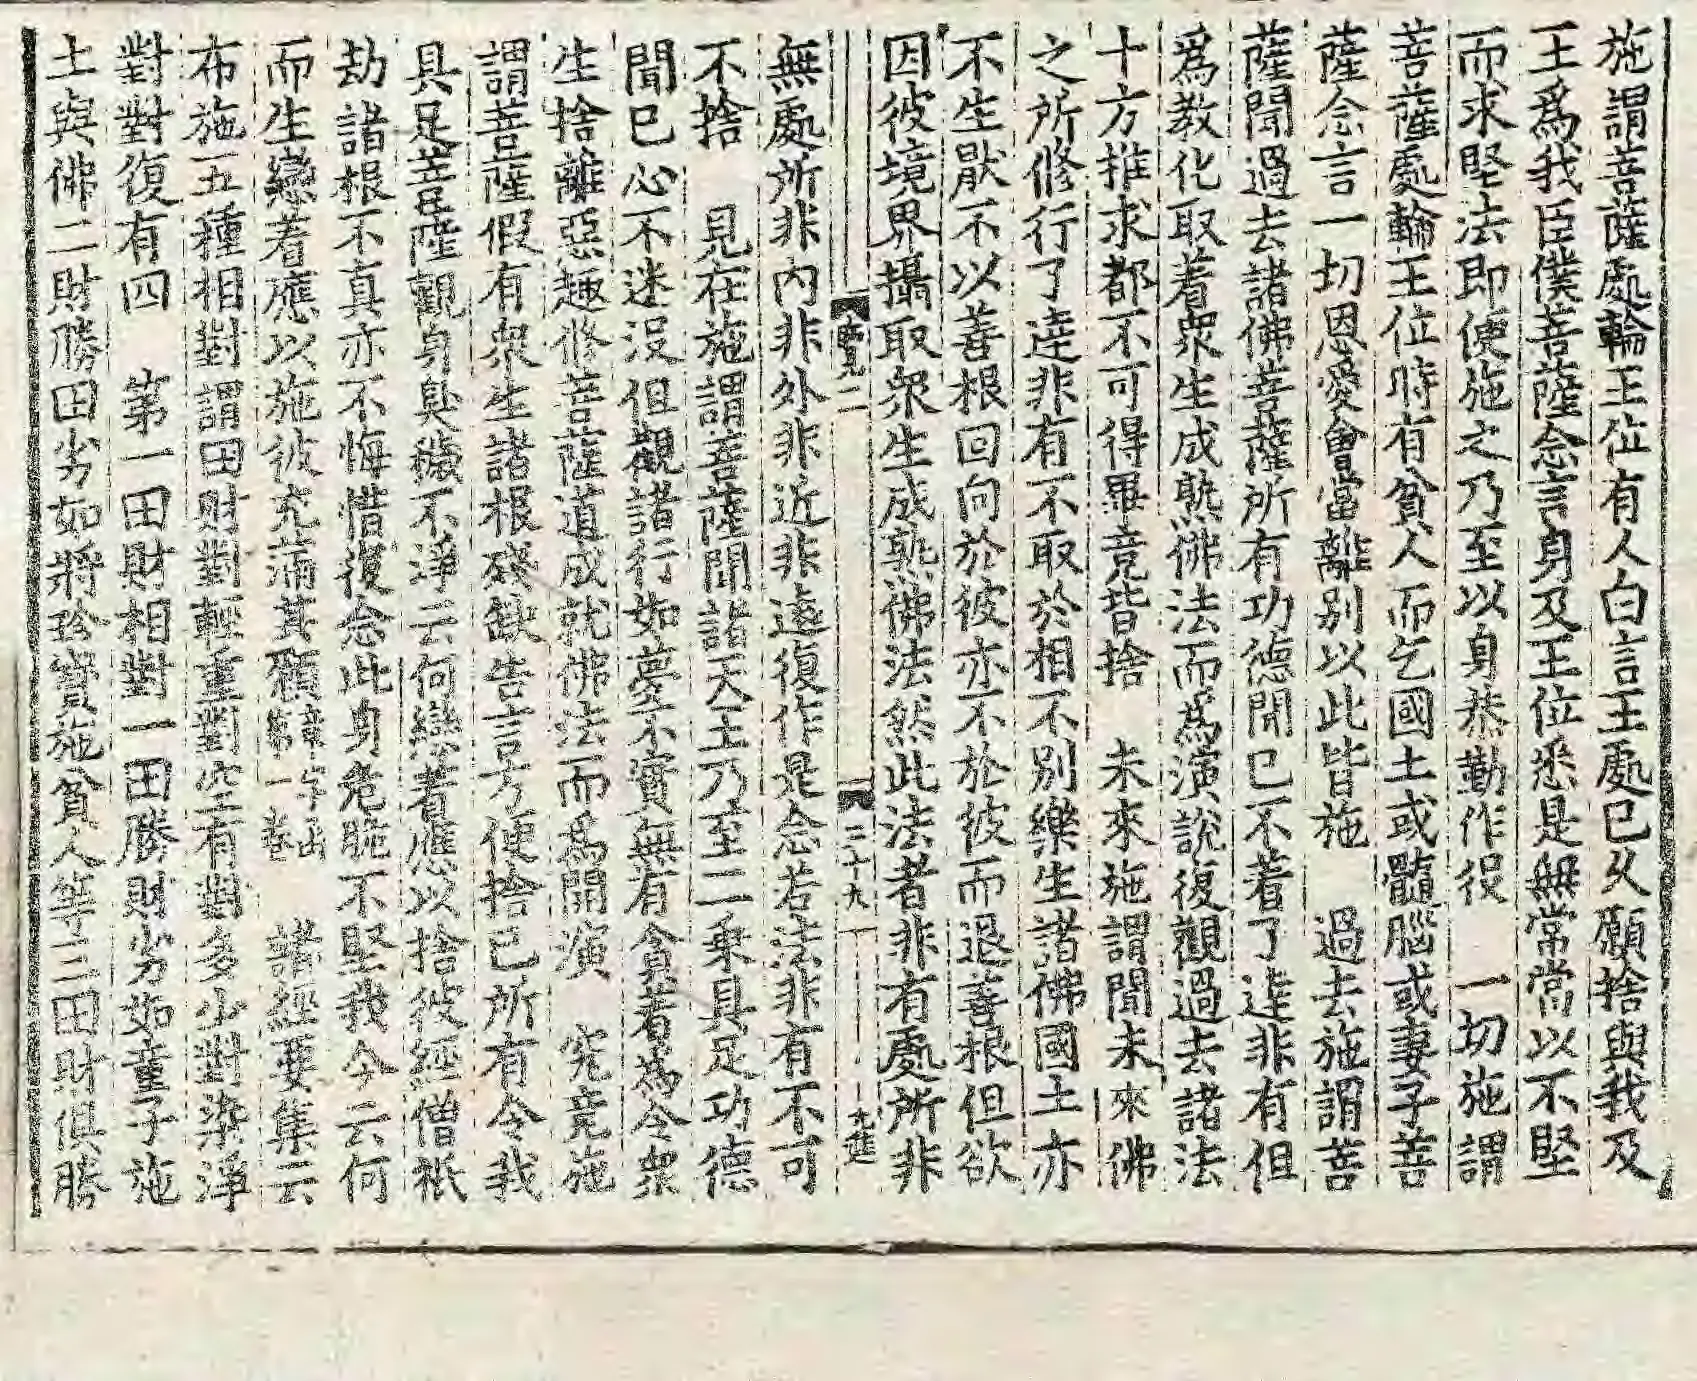 施謂菩薩處輪王位有人白言王處已久願捨與我及
王爲我臣僕菩薩念言身及王位悉是無常常以不堅
而求堅法即便施之乃至以身恭勤作役　一切施謂
菩薩處輪王位時有貧人而乞國土或髓腦或妻子菩
薩念言一切恩愛會當離别以此皆施　過去施謂菩
薩聞過去諸佛菩薩所有功德聞已不着了達非有但
爲教化取着衆生成熟佛法而爲演說復觀過去諸法
十方推求都不可得畢竟皆捨　未來施謂聞未來佛
之所修行了達非有不取於相不别樂生諸佛國土亦
不生厭不以善根回向於彼亦不於彼而退善根但欲
因彼境界攝取衆生成熟佛法然此法者非有處所非
二　二十九
無處所非內非外非近非遠復作是念若法非有不可
不捨　見在施謂菩薩聞諸天王乃至二乘具足功德
聞已心不迷沒但觀諸行如夢不實無有貪着爲令衆
生捨離惡趣修菩薩道成就佛法而爲開演　究竟施
謂菩薩假有衆生諸根殘缺告言方便捨已所有令我
具足菩薩觀身臭穢不淨云何戀着應以捨彼經僧祇
劫諸根不真亦不悔惜復念此身危脆不堅我今云何
而生戀着應以施彼充滿其願章字函第一卷　諸經要集云
布施五種相對謂田財對輕重對空有對多少對染淨
對對復有四　第一田財相對一田勝財劣如童子施
土與佛二財勝田劣如將珍寶施貧人等三田財俱勝